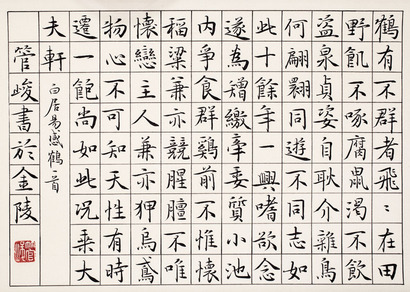 鶴有不群者飛〻在田
野飢不啄腐鼠渴不飲
盜泉貞姿自耿介雜鳥
何翩翾同遊不同志如
此十餘年一興嗜欲念
遂為矰繳牽委質小池
內爭食群雞前不惟懷
稻粱兼亦競腥膻不唯
懷戀主人兼亦狎烏鳶
物心不可知天性有時
遷一飽尚如此況乘大
夫軒
白居易感鶴一首
管峻書於金陵